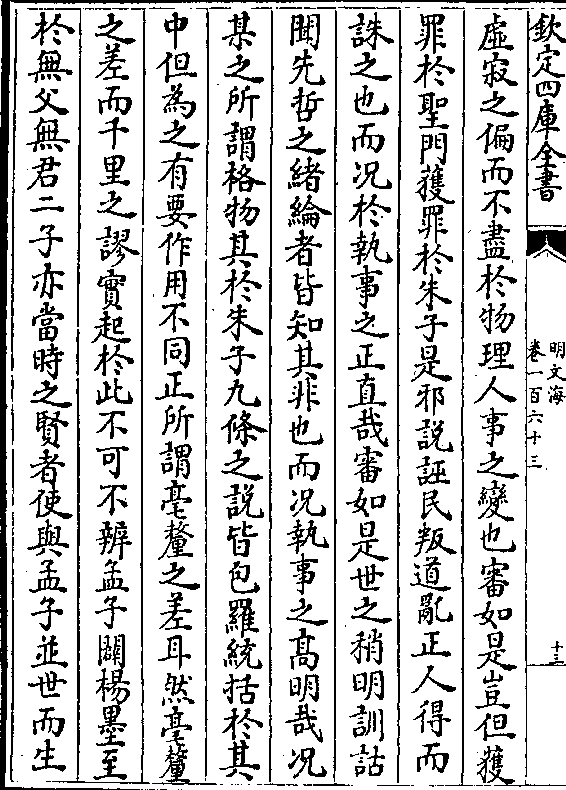 欽定四庫全書
明文海
卷一百六十三
十三
虛寂之偏而不盡於物理人事之變也審如是豈但獲
罪於聖門獲罪於朱子是邪說誣民叛道亂正人得而
誅之也而况於執事之正直哉審如是世之稍明訓詁
聞先哲之緒綸者皆知其非也而况執事之高明哉况
某之所謂格物其於朱子九條之說皆包羅統括於其
中但為之有要作用不同正所謂毫釐之差耳然毫釐
之差而千里之謬實起於此不可不辨孟子闢楊墨至
於無父無君二子亦當時之賢者使與孟子並世而生